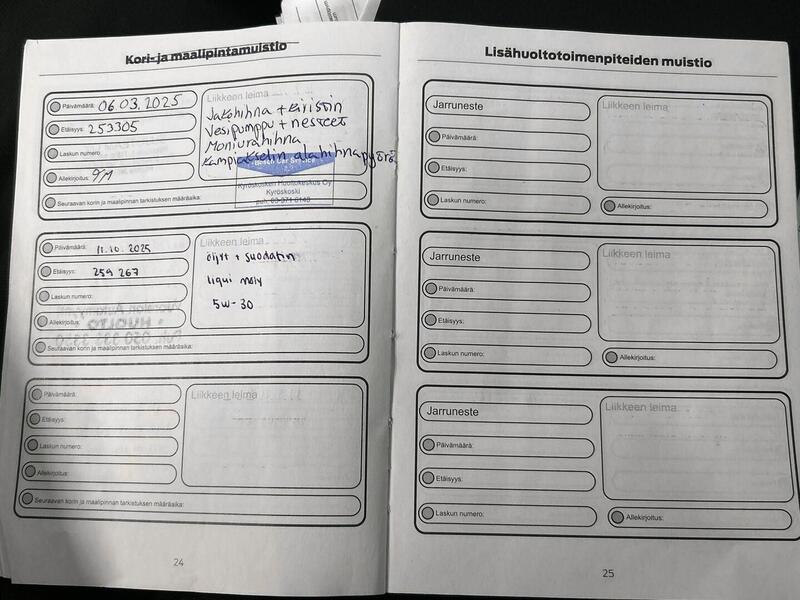 Kori- ja maalipintamuistio
Päivämäärä: 06.03.2025
Etäisyys: 253305
Laskun numero:
Allekirjoitus:
Seuraavan korin ja maalipinnan tarkistuksen määräaika:
Liikkeen leima
Jakohihna + kiristin
Vesipumppu + nesteet
Moniurahihna
Kampiakselin alahihnapyörä
Bosch Car Service
Kyröskosken Huoltokeskus Oy
Kyröskoski
puh. 03-371 6148
Päivämäärä: 11.10.2025
Etäisyys: 259 267
Laskun numero:
Allekirjoitus:
Seuraavan korin ja maalipinnan tarkistuksen määräaika:
Liikkeen leima
öljyt + suodatin
liqui moly
5w-30
Päivämäärä:
Etäisyys:
Laskun numero:
Allekirjoitus:
Seuraavan korin ja maalipinnan tarkistuksen määräaika:
Liikkeen leima
24
Lisähuoltotoimenpiteiden muistio
Jarruneste
Päivämäärä:
Etäisyys:
Laskun numero:
Liikkeen leima
Allekirjoitus:
Jarruneste
Päivämäärä:
Etäisyys:
Laskun numero:
Liikkeen leima
Allekirjoitus:
Jarruneste
Päivämäärä:
Etäisyys:
Laskun numero:
Liikkeen leima
Allekirjoitus:
25